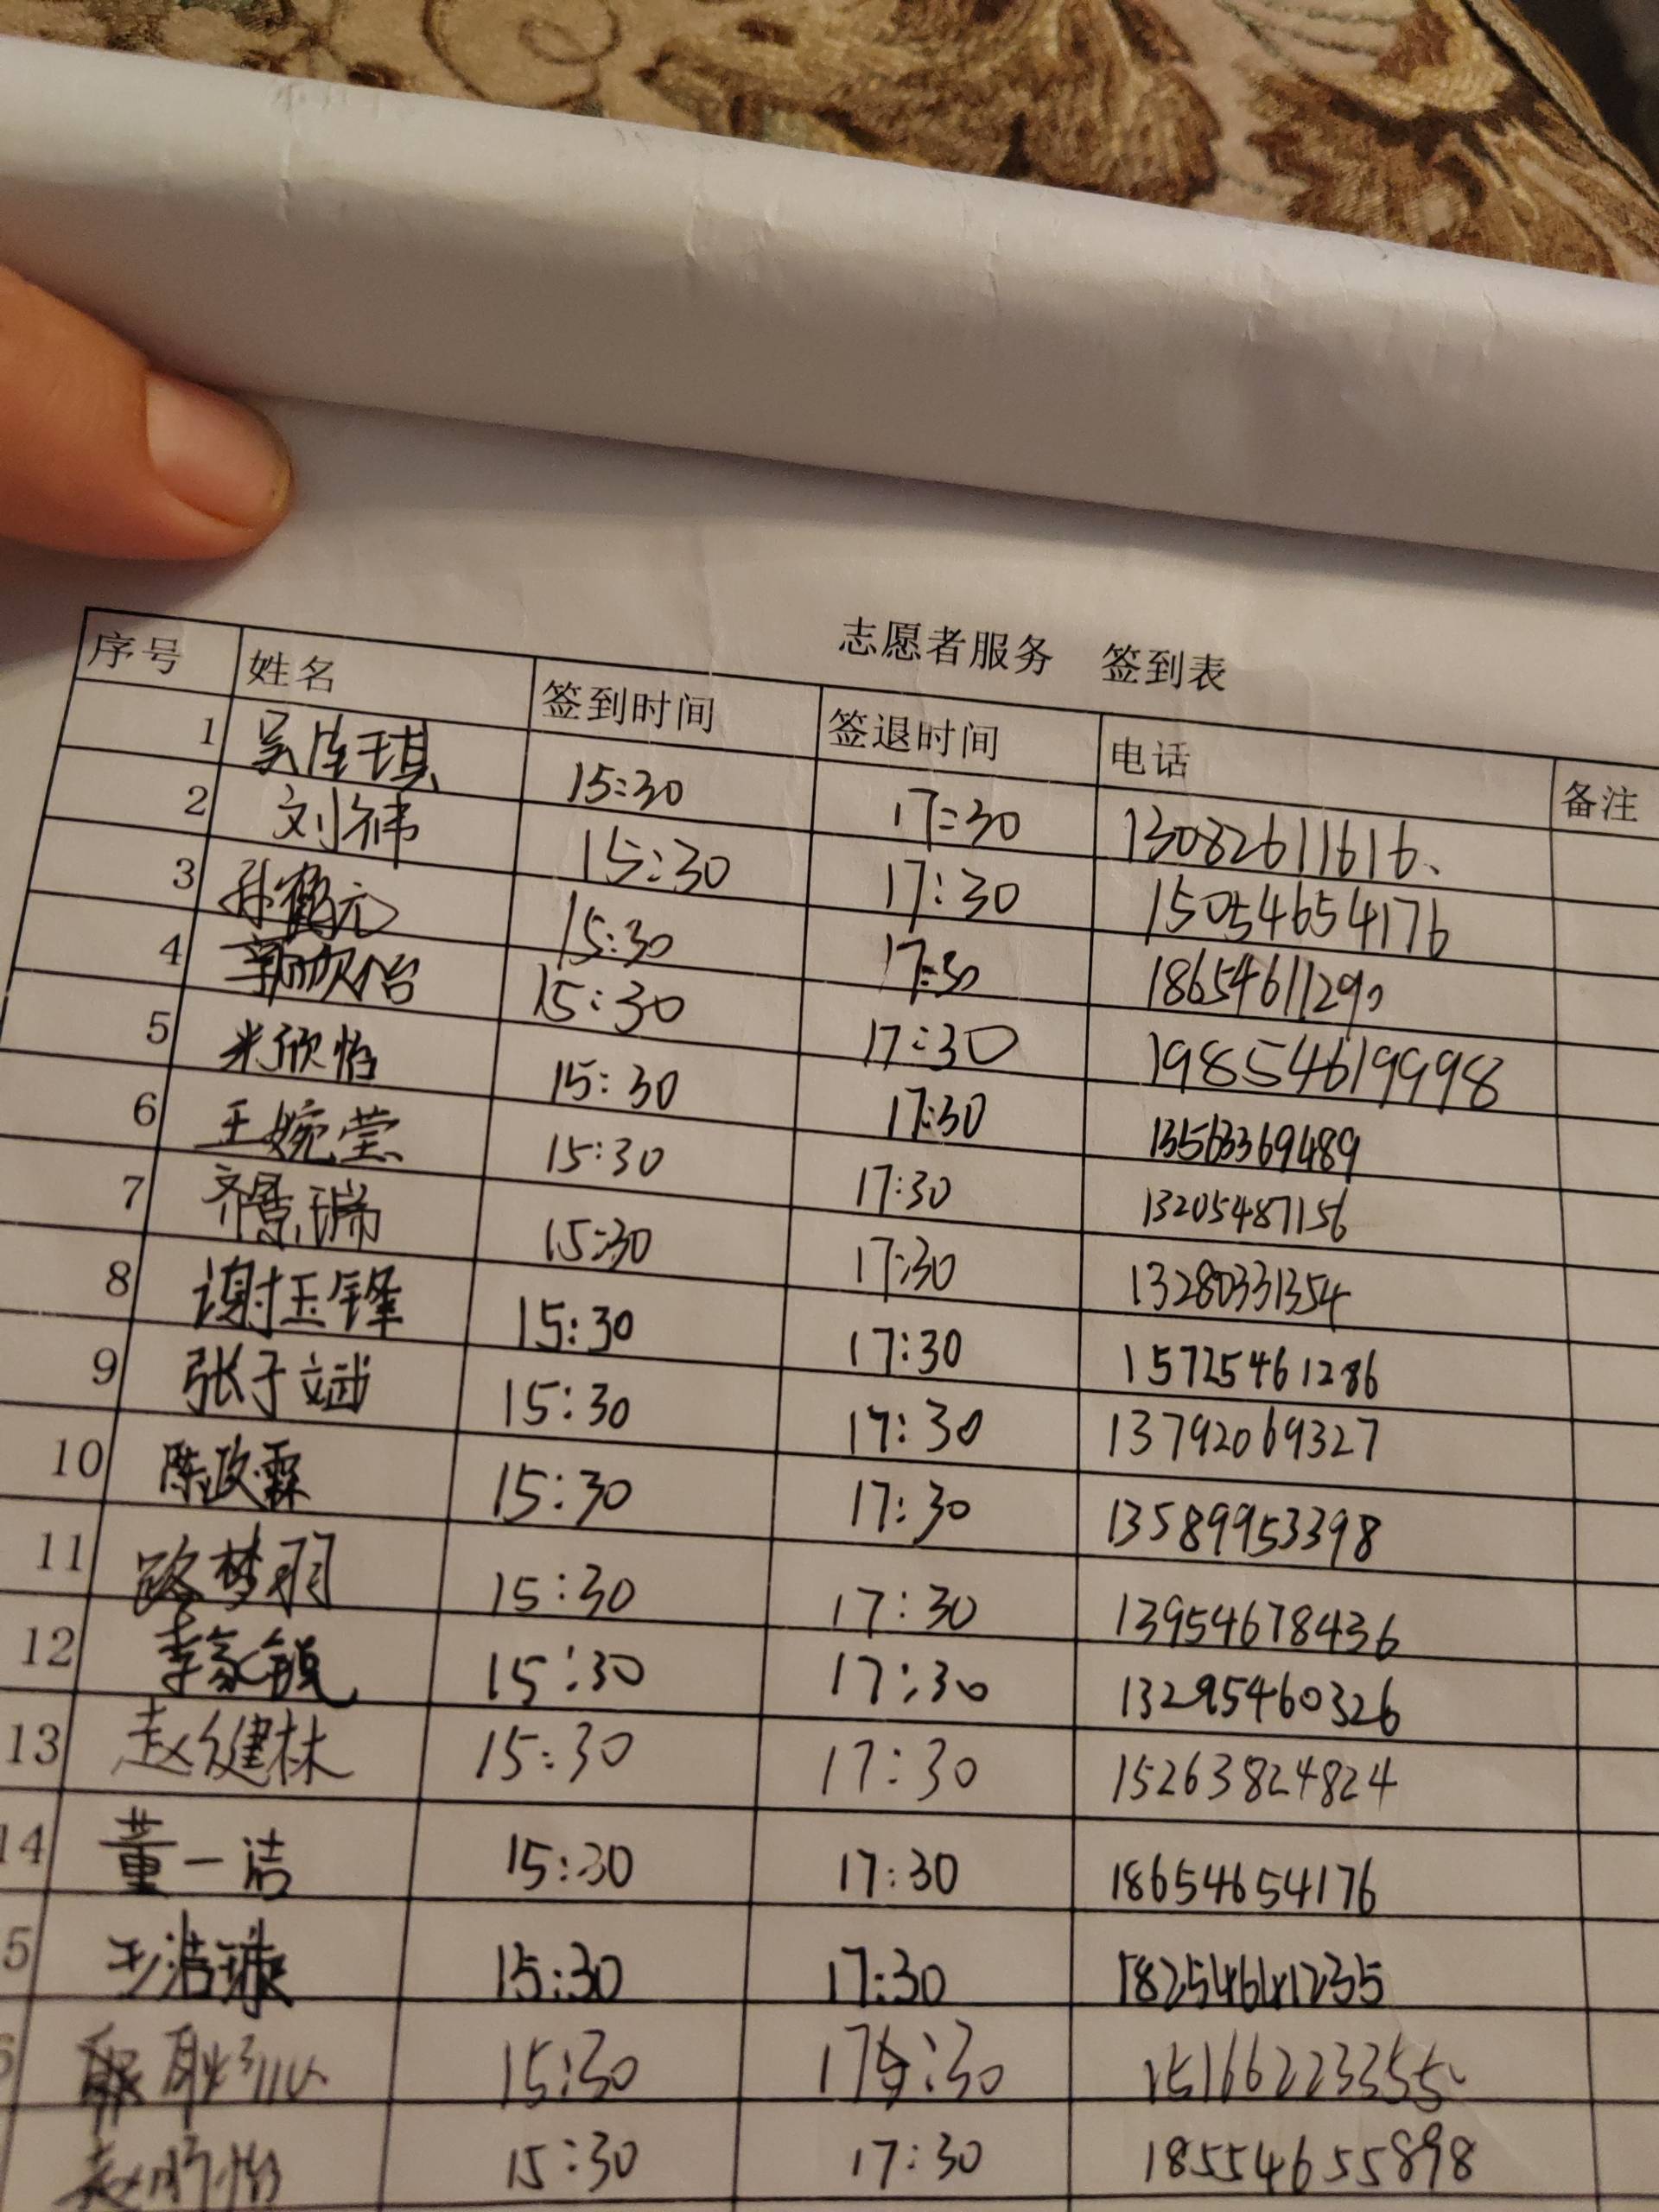 志愿者服务 签到表
序号 姓名 签到时间 签退时间 电话 备注
1 15:30 17:30 13082611616
2 刘祎 15:30 17:30 15054654176
3 孙鹤元 15:30 17:30 18654611290
4 郭欣怡 15:30 17:30 19854619998
5 米欣怡 15:30 17:30 13563369489
6 王婉莹 15:30 17:30 13205487156
7 齐景瑞 15:30 17:30 13280331354
8 谢玉锋 15:30 17:30 15725461286
9 张子斌 15:30 17:30 13792069327
10 陈政霖 15:30 17:30 13589953398
11 路梦羽 15:30 17:30 13954678436
12 李家锐 15:30 17:30 13295460326
13 赵健林 15:30 17:30 15263824824
14 董一洁 15:30 17:30 18654654176
5 15:30 17:30
15:30 15166223355
15:30 17:30 18554655898